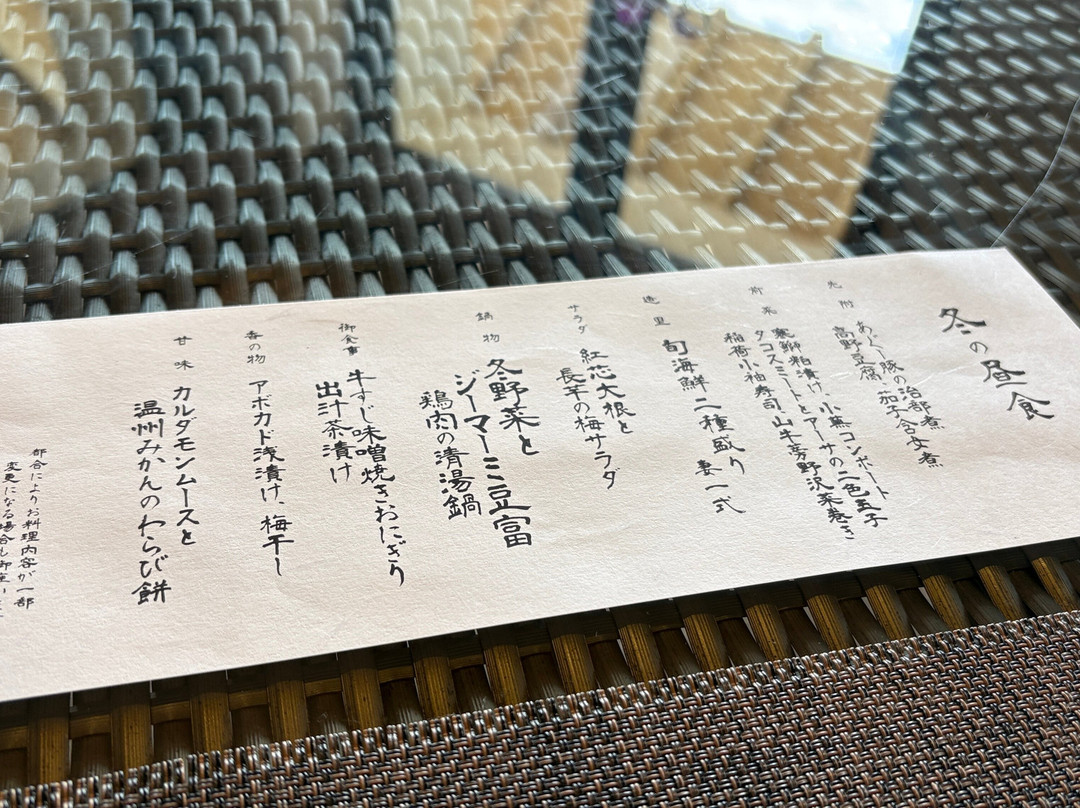 冬の昼食
先附
あぐー豚の治部煮
高野豆腐、茄子含め煮
前菜
寒鰤粕漬け、小蕪コンポート
タコスミートとアーサの二色玉子
稲荷小袖寿司、山牛蒡野沢菜巻き
造里
旬海鮮二種盛り 妻一式
サラダ
紅芯大根と
長芋の梅サラダ
鍋物
冬野菜と
ジーマーミ豆富
鶏肉の清湯鍋
御食事
牛すじ味噌焼きおにぎり
出汁茶漬け
香の物
アボカド浅漬け、梅干し
甘味
カルダモンムースと
温州みかんのわらび餅
都合によりお料理内容が一部
変更になる場合も御座い